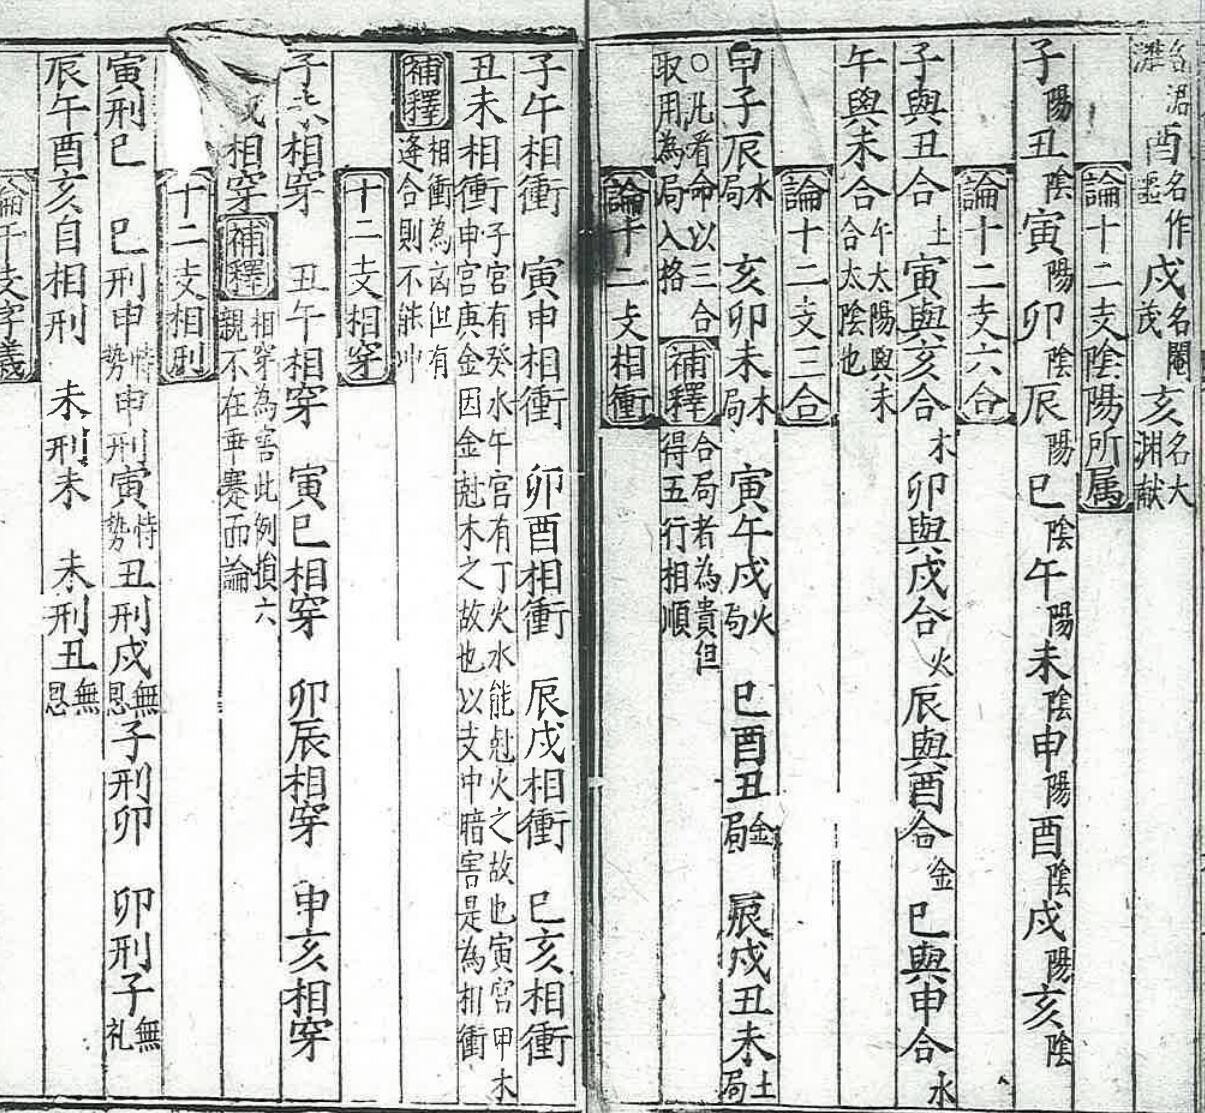 酉名作 戌名閹茂 亥名大渊献
論十二支陰陽所属
子陽丑陰寅陽卯陰辰陽巳陰午陽未陰申陽酉陰戌陽亥陰
論十二支六合
子與丑合土寅與亥合木卯與戌合火辰與酉合金巳與申合水
午與未合午太陽與未合太陰也
論十二支三合
申子辰水局 亥卯未木局 寅午戌火局 巳酉丑金局 辰戌丑未土局
○凡看命以三合取用為局入格 補釋 合局者為貴但得五行相順
論十二支相衝
子午相衝 寅申相衝 卯酉相衝 辰戌相衝 巳亥相衝
丑未相衝 子宮有癸水午宮有丁火水能尅火之故也寅宮甲木申宮庚金因金尅木之故也以支中暗害是為相衝
補釋 相衝為凶但有逢合則不能冲
十二支相穿
子未相穿 丑午相穿 寅巳相穿 卯辰相穿 申亥相穿
戌相穿 補釋 相穿為害此例損六親不在重蹇而論
十二支相刑
寅刑巳 巳刑申恃势 申刑寅恃势 丑刑戌無恩 子刑卯 卯刑子無礼
辰午酉亥自相刑 未刑未 未刑丑無恩
論干支字義